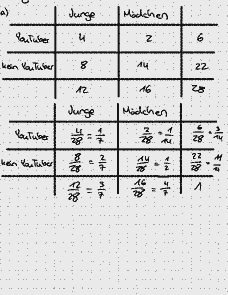 a) Junge Mädchen
YouTuber 4 2 6
kein YouTuber 8 14 22
12 16 28
Junge Mädchen
YouTuber 4/28 = 1/7 2/28 = 1/14 6/28 = 3/14
kein YouTuber 8/28 = 2/7 14/28 = 1/2 22/28 = 11/14
12/28 = 3/7 16/28 = 4/7 1